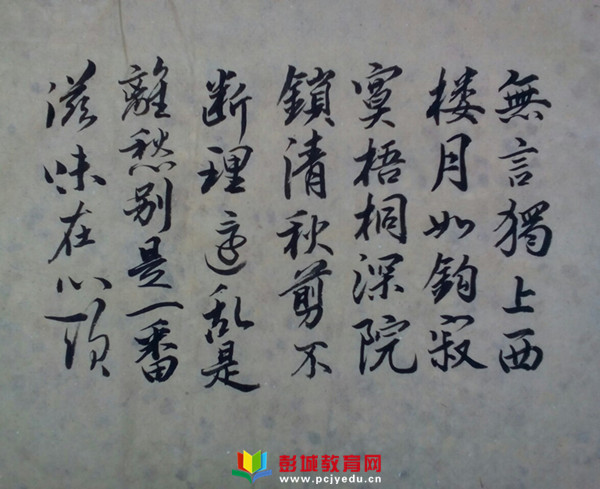 無言獨上西
楼月如鈎寂
寞梧桐深院
鎖清秋剪不
断理還乱是
離愁别是一番
滋味在心頭
彭城教育网
www.pcjyedu.cn